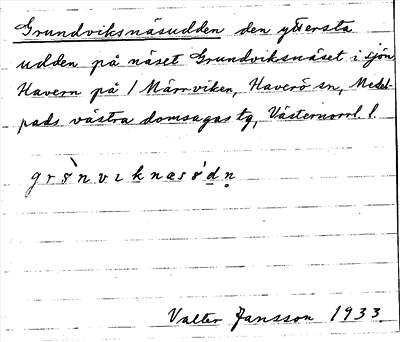 Grundviksnäsudden den yttersta
udden på näset Grundviksnäset i sjön
Havern på / Märrviken, Haverö sn, Medel-
pads västra domsagas tg, Västernorrl. l.
Valter Jansson 1933.